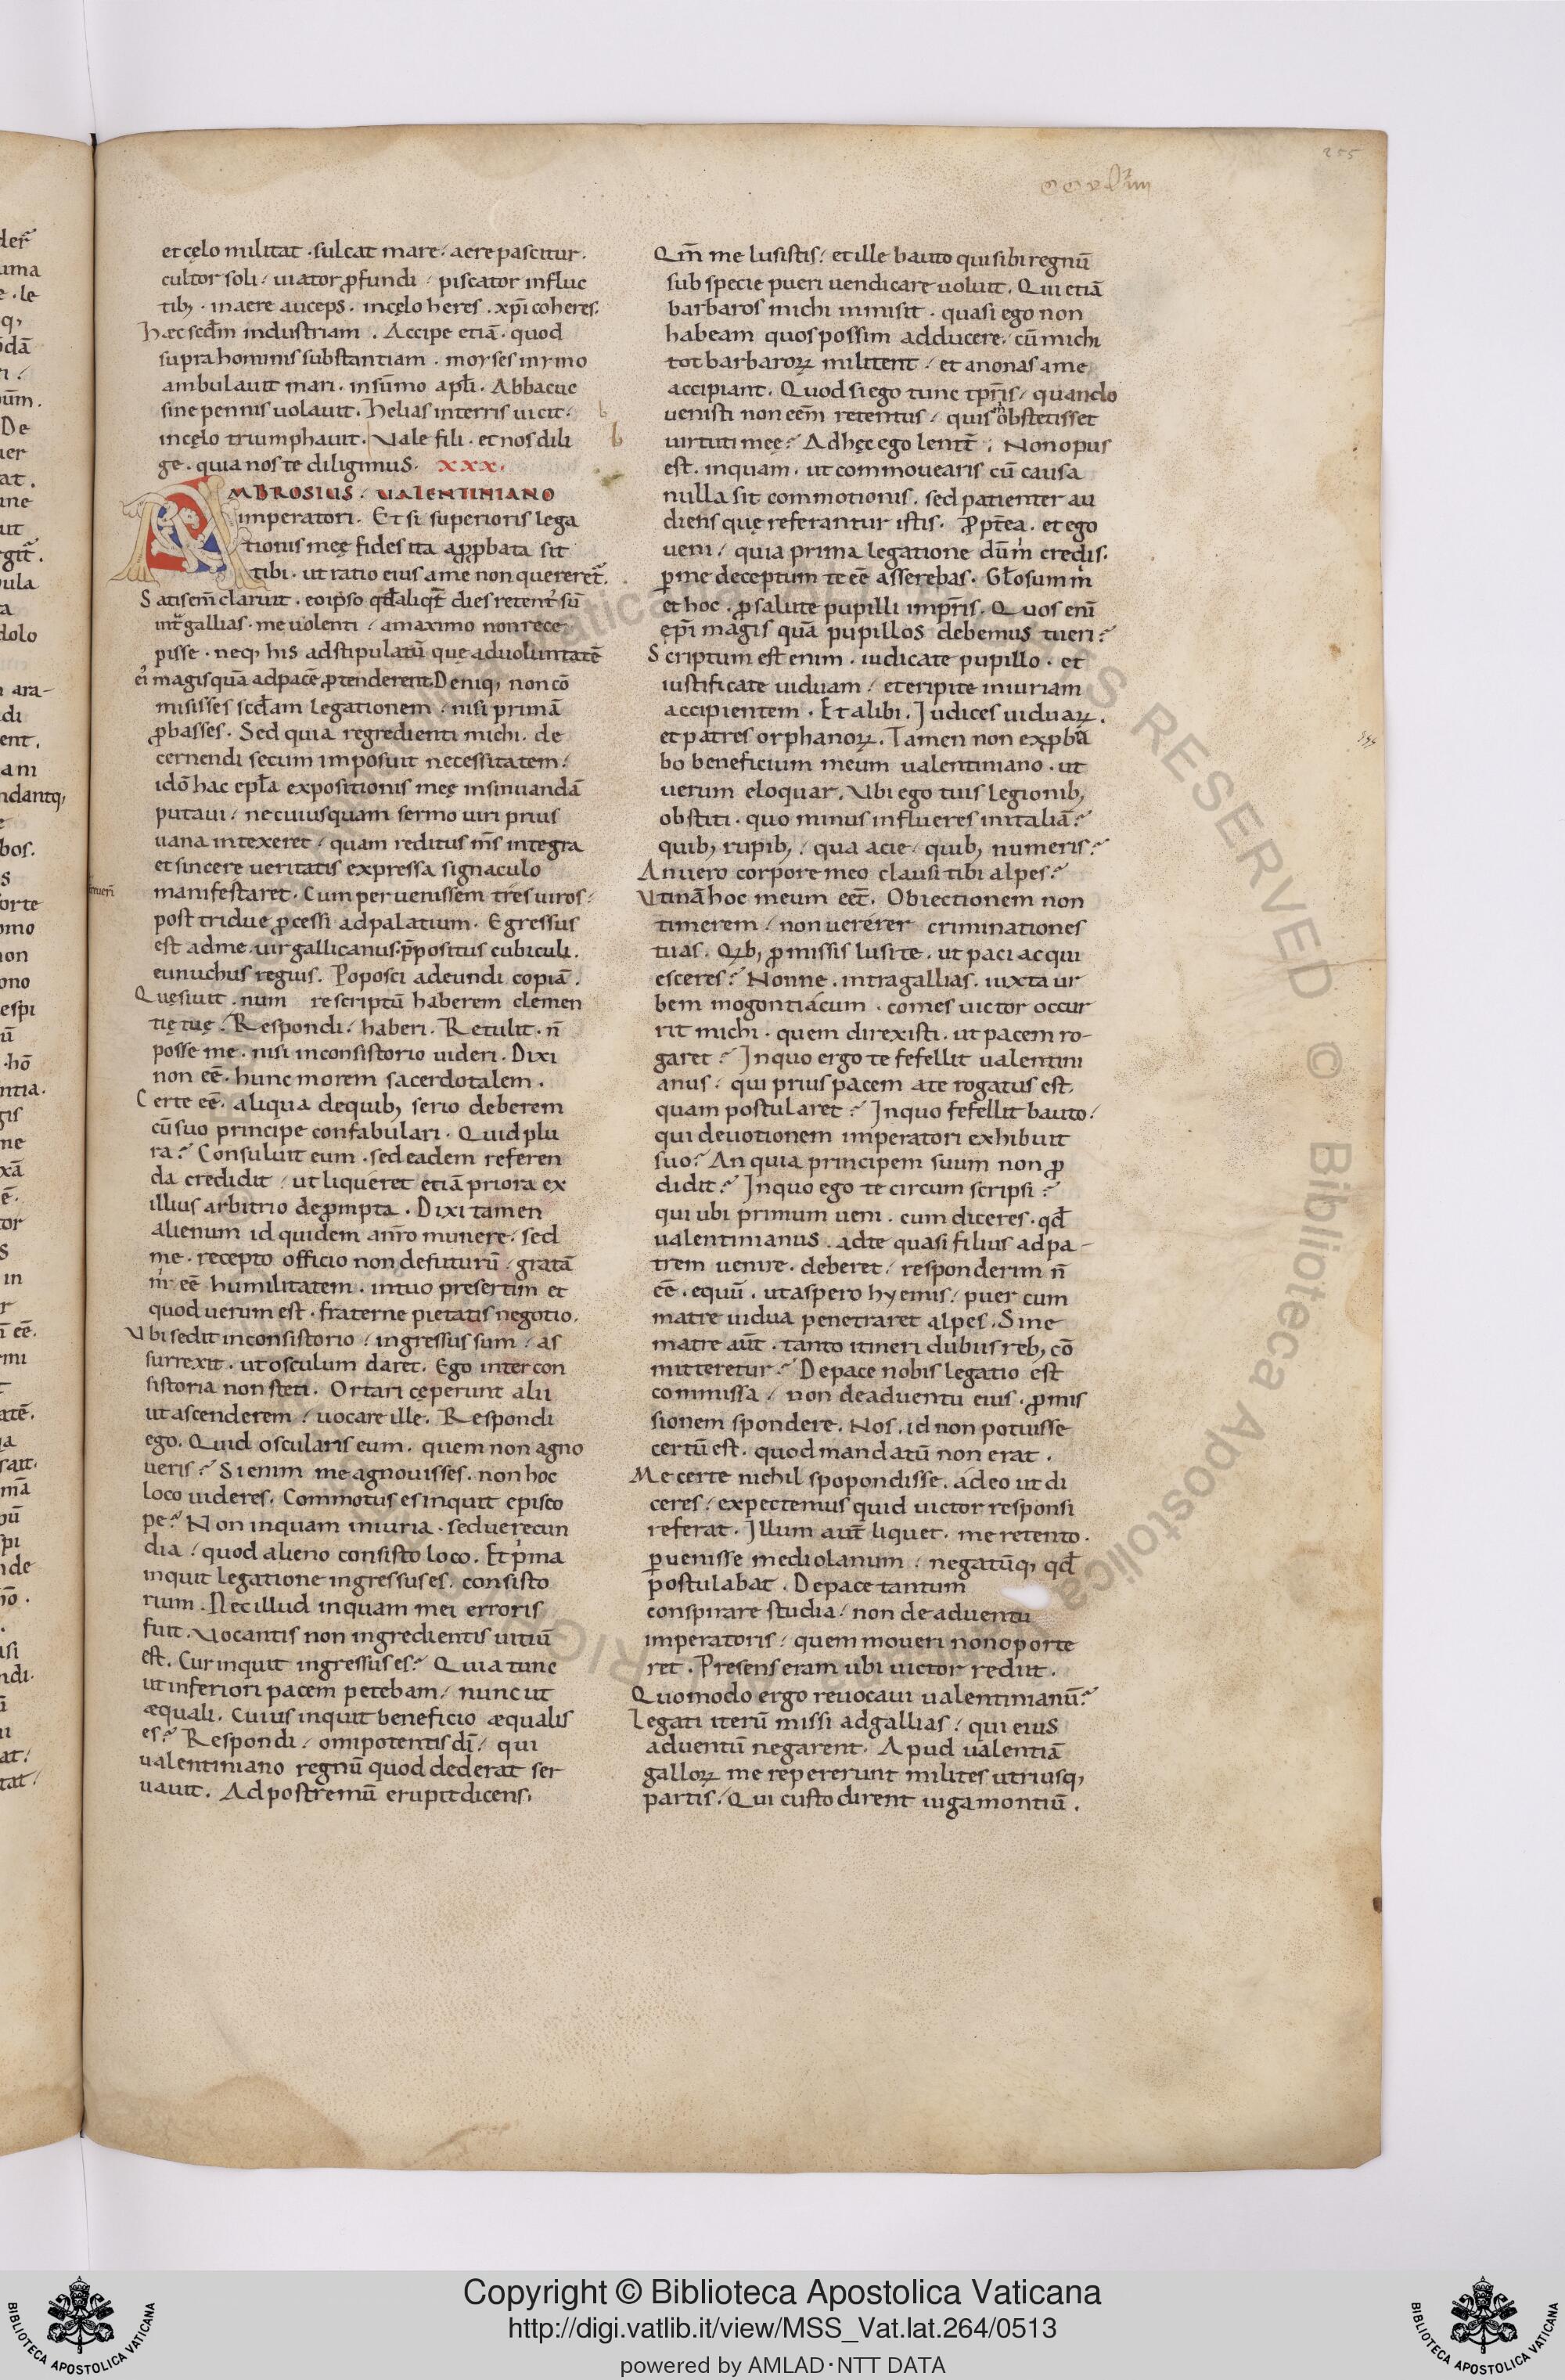 255
et cęlo militat · sulcat mare / aere pascitur ·
cultor soli / uiator ꝓfundi / piscator in fluc
tib; · in aere auceps · in cęlo heres · xp̄i coheres ·
Hæc scdm̄ industriam · Accipe etiā · quod
supra hominis substantiam · moyses in ymo
ambulauit mari · in sūmo apl̄i · Abbacuc
sine pennis uolauit · Helias in terris uicit ·
in cęlo triumphauit · Vale fili · et nos dili
ge · quia nos te diligimus · XXX ·
AMBROSIUS · VALENTINIANO
imperatori · Et si superioris lega
tionis meę fides ita aꝓpbata sit
tibi · ut ratio eius a me non quereret᷑ ·
Satisem̄ claruit · eo ip̄so qd̄ aliqt̄ dies retent᷒ sū
int̄ gallias · me uolenti / a maximo non rece
pisse · neq; his adstipulatū quę ad uoluntatē
ei᷒ magis quā ad pacē ꝓtenderent. Deniq; non cō
misisses scd̄am legationem / nisi primā
ꝓbasses · Sed quia regredienti michi · de
cernendi secum imposuit necessitatem /
idō hac epl̄a expositionis meę insinuandā
putaui / ne cuiusquam sermo uiri prius
uana intexeret / quam reditus m̄s integra
et sincere ueritatis expressa signaculo
manifestaret · Cum peruenissem tres uiros /
post tridue ꝓcessi ad palatium · Egressus
est ad me · uir gallicanus · p̄positus cubiculi ·
eunuchus regius · Poposci adeundi copiā ·
Quęsiuit · num rescriptū haberem clemen
tię tuę · Respondi / haberi · Retulit · n̄
posse me · nisi in consistorio uideri · Dixi
non eē · hunc morem sacerdotalem ·
Certe eē · aliqua de quib; serio deberem
cū suo principe confabulari · Quid plu
ra? Consuluit eum · sed eadem referen
da credidit / ut liqueret etiā priora ex
illius arbitrio deꝓmpta · Dixi tamen
alienum id quidem an̄ro munere / sed
me · recepto officio non defuturū / gratā
m̄ eē humilitatem · in tuo presertim et
quod uerum est · fraterne pietatis negotio ·
Vbi sedit in consistorio / ingressus sum / as
surrexit · ut osculum daret · Ego inter con
sistoria non steti · Ortari cęperunt alii
ut ascenderem / uocare ille · Respondi
ego · Quid oscularis eum · quem non agno
ueris? Si enim me agnouisses · non hoc
loco uideres · Commotus es inquit episco
pe? Non inquam iniuria · sed uerecun
dia / quod alieno consisto loco · Et p̍ma
inquit legatione ingressus es · consisto
rium · Nec illud inquam mei erroris
fuit · Vocantis non ingredientis uitiū
est · Cur inquit ingressus es? Quia tunc
ut inferiori pacem petebam / nunc ut
æquali · Cuius inquit beneficio æqualis
es? Respondi / omnipotentis dī / qui
ualentiniano regnū quod dederat ser
uauit · Ad postremū erupit dicens ·
Qm̄ me lusistis / et ille bauto qui sibi regnū
sub specie pueri uendicare uoluit · Qui etiā
barbaros michi inmisit · quasi ego non
habeam quos possim adducere / cū michi
tot barbaroꝝ militent / et anonas a me
accipiant · Quod si ego tunc tp̄ris / quando
uenisti non eēm retentus / quis obstetisset
uirtuti meę? Ad hęc ego lent̄ · Non opus
est · inquam · ut commouearis cū causa
nulla sit commotionis · sed patienter au
diens quę referantur istis · ꝓpt̄ea · et ego
ueni / quia prima legatione dū m̍ credis ·
ꝑ me deceptum te eē asserebas · Gl̄osum m̍
et hoc · ꝓ salute pupilli imp̄ris · Quos enī
ęp̄i magis quā pupillos debemus tueri?
Scriptum est enim · iudicate pupillo · et
iustificate uiduam / et eripite iniuriam
accipientem · Et alibi · Iudices uiduaꝝ ·
et patres orphanoꝝ · Tamen non exꝓbra
bo beneficium meum ualentiniano · ut
uerum eloquar · Vbi ego tuis legionib;
obstiti · quo minus influeres in italiā?
quib; rupib; / qua acie / quib; numeris?
An uero corpore meo clausi tibi alpes?
Vtinā hoc meum eet̄ · Obiectionem non
timerem / non uererer criminationes
tuas · Qꝫb; ꝓmissis lusi te · ut paci acqui
esceres? Nonne · intra gallias · iuxta ur
bem mogontiacum · comes uictor occur
rit michi · quem direxisti · ut pacem ro-
garet? In quo ergo te fefellit ualentini
anus / qui prius pacem a te rogatus est ·
quam postularet? In quo fefellit bauto /
qui deuotionem imperatori exhibuit
suo? An quia principem suum non ꝓ
didit? In quo ego te circumscripsi?
qui ubi primum ueni · cum diceres · qd̄
ualentinianus · ad te quasi filius ad pa-
trem uenire · deberet / responderim n̄
eē · equū · ut aspero hyemis / puer cum
matre uidua penetraret alpes · Sine
matre aut̄ · tanto itineri dubiis reb; cō
mitteretur? De pace nobis legatio est
commissa / non de aduentu eius · ꝓmis
sionem spondere · Nos · id non potuisse
certū est · quod mandatū non erat ·
Me certe nichil spopondisse · adeo ut di
ceres / expectemus quid uictor responsi
referat · Illum aut̄ liquet · me retento ·
ꝑuenisse mediolanum / negatūq; qd̄
postulabat · De pace tantum
conspirare studia / non de aduentu
imperatoris / quem moueri non oporte
ret · Presens eram ubi uictor rediit ·
Quomodo ergo reuocaui ualentinianū?
Legati iterū missi ad gallias / qui eius
aduentū negarent · Apud ualentiā
galloꝝ me repererunt milites utriusq;
partis / Qui custodirent iuga montiū ·
Copyright © Biblioteca Apostolica Vaticana
http://digi.vatlib.it/view/MSS_Vat.lat.264/0513
powered by AMLAD·NTT DATA
BIBLIOTECA APOSTOLICA VATICANA
BIBLIOTECA APOSTOLICA VATICANA